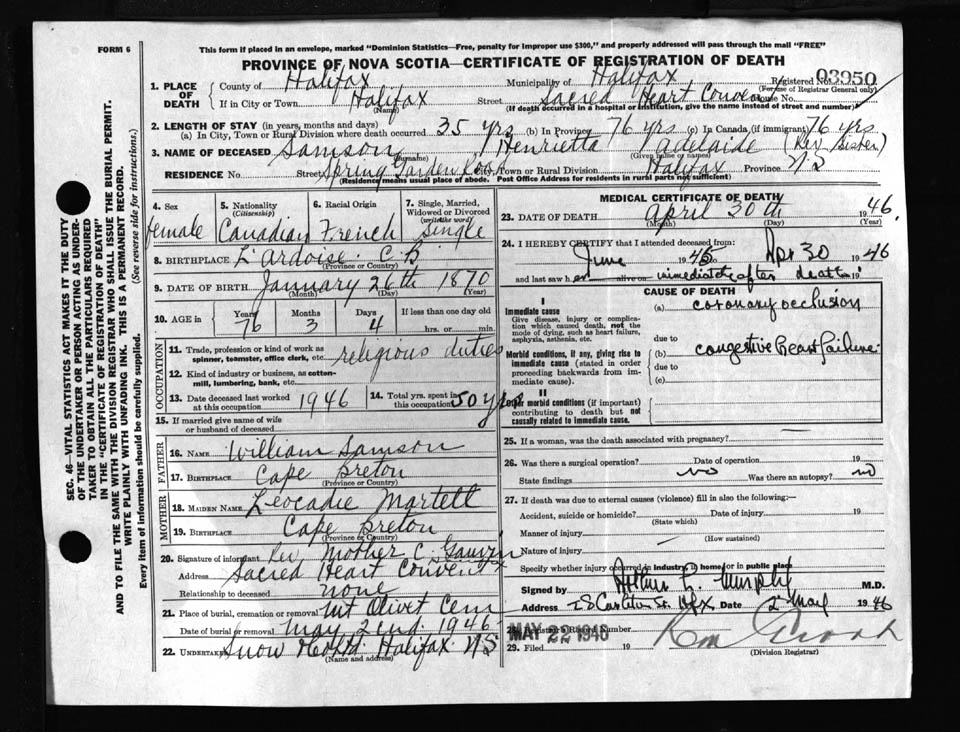 FORM 6
This form if placed in an envelope, marked "Dominion Statistics—Free, penalty for improper use $300," and properly addressed will pass through the mail "FREE"
PROVINCE OF NOVA SCOTIA—CERTIFICATE OF REGISTRATION OF DEATH
1. PLACE OF DEATH
County of Halifax Municipality of Halifax Registered No. 03950
(For use of Registrar General only)
If in City or Town Halifax Street Sacred Heart Convent House No.
(Name) (If death occurred in a hospital or institution, give the name instead of street and number)
2. LENGTH OF STAY (in years, months and days)
(a) In City, Town or Rural Division where death occurred 35 yrs (b) In Province 76 yrs (c) In Canada (if immigrant) 76 yrs
3. NAME OF DECEASED Samson, Henrietta Adelaide (Rev Sister)
(Surname) (Given name or names)
RESIDENCE No. Street Spring Garden Road City, Town or Rural Division Halifax Province N.S
(Residence means usual place of abode. Post Office Address for residents in rural parts not sufficient)
4. Sex
female
5. Nationality (Citizenship)
Canadian
6. Racial Origin
French
7. Single, Married, Widowed or Divorced (write the word)
Single
8. BIRTHPLACE L'Ardoise C.B
(Province or Country)
9. DATE OF BIRTH January 26th 1870
(Month) (Day) (Year)
10. AGE in Years Months Days If less than one day old
76 3 4 hrs. or min.
OCCUPATION
11. Trade, profession or kind of work as spinner, teamster, office clerk, etc. religious duties
12. Kind of industry or business, as cotton-mill, lumbering, bank, etc.
13. Date deceased last worked at this occupation 1946
14. Total yrs. spent in this occupation 50 yrs
15. If married give name of wife or husband of deceased
FATHER
16. NAME William Samson
17. BIRTHPLACE Cape Breton
(Province or Country)
MOTHER
18. MAIDEN NAME Leocadie Martell
19. BIRTHPLACE Cape Breton
(Province or Country)
20. Signature of informant Rev Mother C.
Address Sacred Heart Convent
Relationship to deceased none
21. Place of burial, cremation or removal Mt Olivet Cem
Date of burial or removal May 2nd 1946
22. Undertaker Snow Halifax N.S
(Name and address)
MEDICAL CERTIFICATE OF DEATH
23. DATE OF DEATH April 30th 1946.
(Month) (Day) (Year)
24. I HEREBY CERTIFY that I attended deceased from:
June 1945 to Apr 30 1946
and last saw her alive on immediately after death 19
CAUSE OF DEATH
I
Immediate cause
Give disease, injury or complication which caused death, not the mode of dying, such as heart failure, asphyxia, asthenia, etc.
(a) coronary occlusion
due to
Morbid conditions, if any, giving rise to immediate cause (stated in order proceeding backwards from immediate cause).
(b) congestive heart failure
due to
(c)
II
Other morbid conditions (if important) contributing to death but not causally related to immediate cause.
25. If a woman, was the death associated with pregnancy?
26. Was there a surgical operation? Date of operation 19
State findings no Was there an autopsy? no
27. If death was due to external causes (violence) fill in also the following:—
Accident, suicide or homicide? Date of injury 19
(State which)
Manner of injury
(How sustained)
Nature of injury
Specify whether injury occurred in industry, in home, or in public place
Signed by Arthur E. Murphy M.D.
Address 28 Carleton St. Hfx Date 2 May 1946
28. Registrar's Number
MAY 22 1946
29. Filed 19
(Division Registrar)
SEC. 46—VITAL STATISTICS ACT MAKES IT THE DUTY OF THE UNDERTAKER OR PERSON ACTING AS UNDERTAKER TO OBTAIN ALL THE PARTICULARS REQUIRED IN THE "CERTIFICATE OF REGISTRATION OF DEATH" AND TO FILE THE SAME WITH THE DIVISION REGISTRAR WHO SHALL ISSUE THE BURIAL PERMIT.
WRITE PLAINLY WITH UNFADING INK. THIS IS A PERMANENT RECORD.
Every item of information should be carefully supplied. (See reverse side for instructions.)